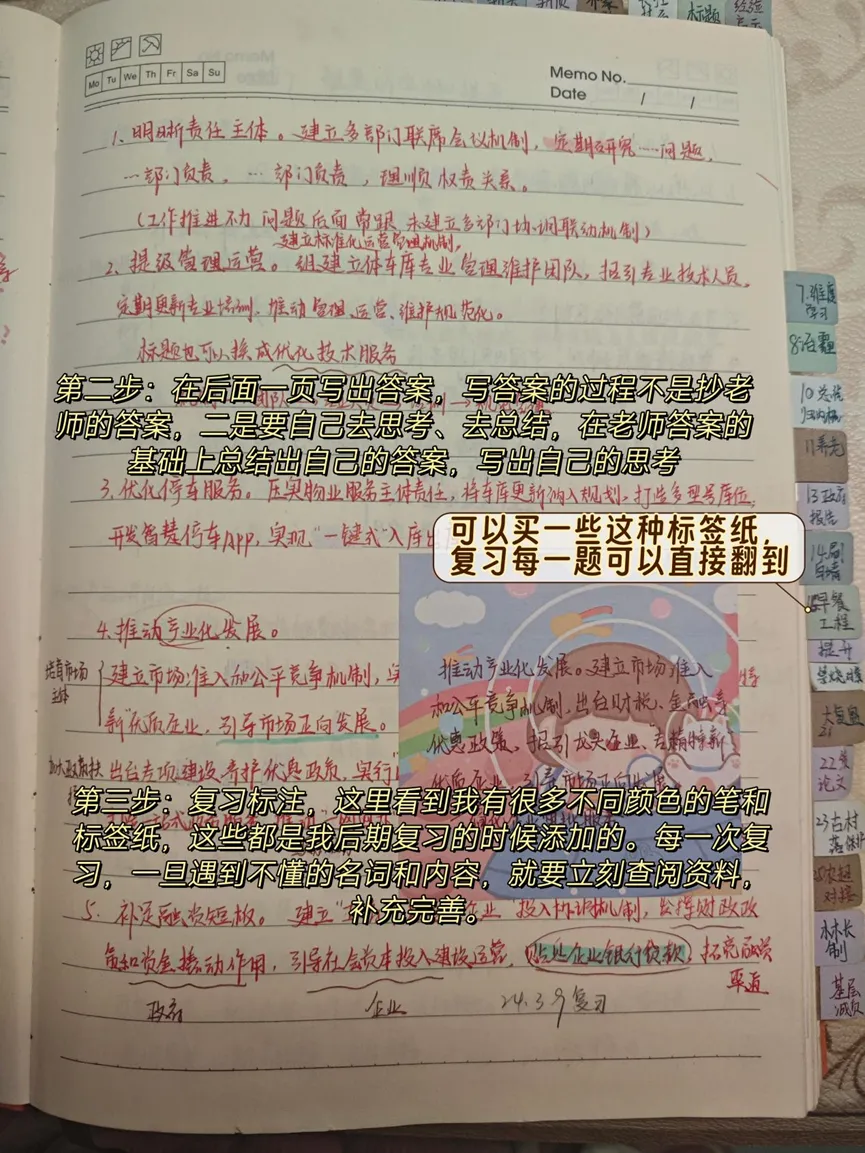 标题
Mo Tu We Th Fr Sa Su
Memo No.
Date / /
1. 明晰责任主体。建立多部门联席会议机制，定期研究……问题，
…部门负责，…部门负责，理顺权责关系。
(工作推进不力 问题后面常跟 未建立多部门协调联动机制)
建立标准化运营管理机制，
2. 提级管理运营。组建立体车库专业管理维护团队，招引专业技术人员，
定期更新专业培训，推动管理、运营、维护规范化。
标题也可以换成优化技术服务
第二步：在后面一页写出答案，写答案的过程不是抄老
师的答案，二是要自己去思考、去总结，在老师答案的
基础上总结出自己的答案，写出自己的思考
3. 优化停车服务。压实物业服务主体责任，将车库更新纳入规划，打造多型号库位，
开发智慧停车App，实现"一键式"入库
可以买一些这种标签纸，
复习每一题可以直接翻到
4. 推动产业化发展。
培育市场
主体
建立市场准入和公平竞争机制，
新"优质企业，引导市场正向发展。
出台专项建设、养护优惠政策，实行
推动产业化发展。建立市场准入
和公平竞争机制，出台财税、金融等
优惠政策、招引龙头企业、专精特新
优质企业，引导市场正向发展
第三步：复习标注，这里看到我有很多不同颜色的笔和
标签纸，这些都是我后期复习的时候添加的。每一次复
习，一旦遇到不懂的名词和内容，就要立刻查阅资料，
补充完善。
5. 补足融资短板。建立"
企业"投入协调机制，发挥财政政
策和资金撬动作用，引导社会资本投入建设运营，
企业银行贷款，拓宽融资
渠道
政府
企业
24.3.9复习
7.维度
学习
8治霾
10总结
11养老
13政府
报告
14.刷
白墙
早餐
工程
提升
大气鱼
21
22类
论文
23古村
落保护
对接
林长
制
基层
减负